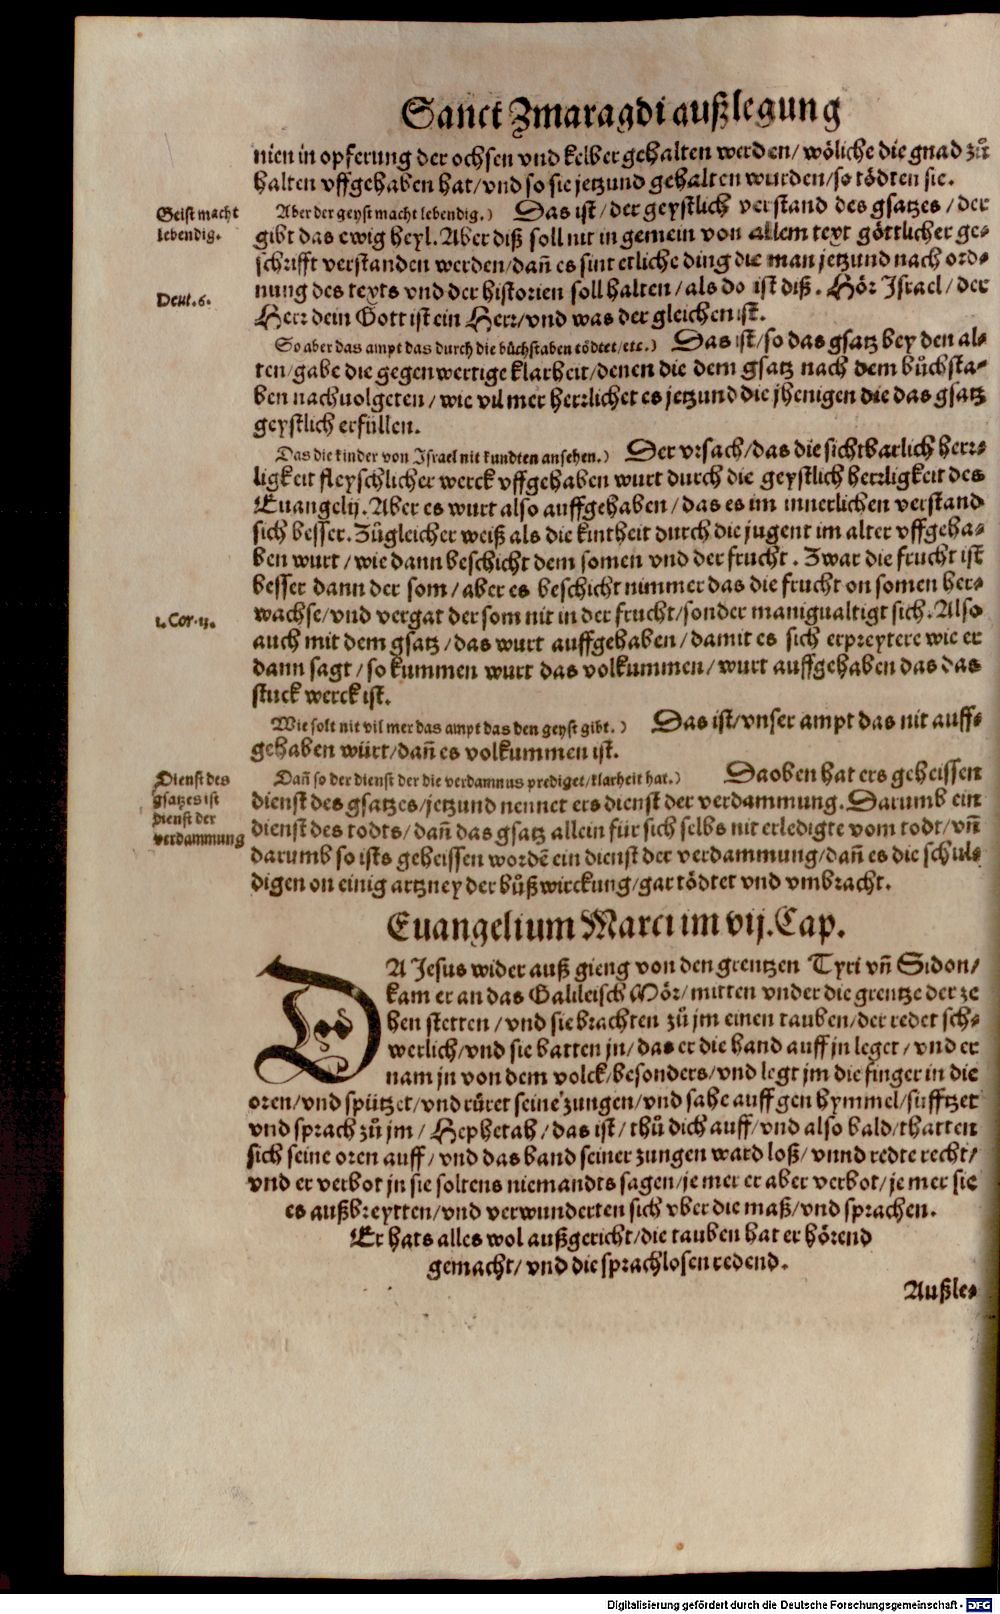 Sanct Zmaragdi außlegung
nien in opferung der ochsen vnd kelber gehalten werden/ wöliche die gnad zů
halten vffgehaben hat/ vnd so sie jetzund gehalten wurden/ so tödten sie.
Geist macht
lebendig.
Aber der geyst macht lebendig.) Das ist/ der geystlich verstand des gsatzes/ der
gibt das ewig heyl. Aber diß soll nit in gemein von allem text göttlicher ge⸗
schrifft verstanden werden/ dañ es sint etliche ding die man jetzund nach ord⸗
Deut. 6.
nung des texts vnd der historien soll halten/ als do ist diß. Hör Israel/ der
Herr dein Gott ist ein Herr/ vnd was der gleichen ist.
So aber das ampt das durch die bůchstaben tödtet/ etc.) Das ist/ so das gsatz bey den al⸗
ten/ gabe die gegenwertige klarheit/ denen die dem gsatz nach dem bůchsta⸗
ben nachuolgeten/ wie vil mer herrlichet es jetzund die jhenigen die das gsatz
geystlich erfüllen.
Das die kinder von Israel nit kundten ansehen.) Der vrsach/ das die sichtbarlich herr⸗
ligkeit fleyschlicher werck vffgehaben wurt durch die geystlich herrligkeit des
Euangelij. Aber es wurt also auffgehaben/ das es im innerlichen verstand
sich besser. Zůgleicher weiß als die kintheit durch die jugent im alter vffgeha⸗
ben wurt/ wie dann beschicht dem somen vnd der frucht. Zwar die frucht ist
besser dann der som/ aber es beschicht nimmer das die frucht on somen her⸗
1. Cor. 13.
wachse/ vnd vergat der som nit in der frucht/ sonder manigualtigt sich. Also
auch mit dem gsatz/ das wurt auffgehaben/ damit es sich erpreytere wie er
dann sagt/ so kummen wurt das volkummen/ wurt auffgehaben das das
stuck werck ist.
Wie solt nit vil mer das ampt das den geyst gibt.) Das ist/ vnser ampt das nit auff⸗
gehaben würt/ dañ es volkummen ist.
Dienst des
gsatzes ist
dienst der
verdammung
Dañ so der dienst der die verdamnus prediget/ klarheit hat.) Da oben hat ers geheissen
dienst des gsatzes/ jetzund nennet ers dienst der verdammung. Darumb ein
dienst des todts/ dañ das gsatz allein für sich selbs nit erledigte vom todt/ vñ
darumb so ists geheissen wordẽ ein dienst der verdammung/ dañ es die schul⸗
digen on einig artzney der bůß wirckung/ gar tödtet vnd vmbracht.
Euangelium Marci im vij. Cap.
DA Jesus wider auß gieng von den grentzen Tyri vñ Sidon/
kam er an das Galileisch Mör/ mitten vnder die grentze der ze
hen stetten/ vnd sie brachten zů jm einen tauben/ der redet sch⸗
werlich/ vnd sie batten jn/ das er die hand auff jn leget/ vnd er
nam jn von dem volck/ besonders/ vnd legt jm die finger in die
oren/ vnd spützet/ vnd rüret seine zungen/ vnd sahe auff gen hymmel/ sufftzet
vnd sprach zů jm/ Hephetah/ das ist/ thů dich auff/ vnd also bald/ thatten
sich seine oren auff/ vnd das band seiner zungen ward loß/ vnnd redte recht/
vnd er verbot jn sie soltens niemandts sagen/ je mer er aber verbot/ je mer sie
es außbreytten/ vnd verwunderten sich vber die maß/ vnd sprachen.
Er hats alles wol außgericht/ die tauben hat er hörend
gemacht/ vnd die sprachlosen redend.
Außle⸗
Digitalisierung gefördert durch die Deutsche Forschungsgemeinschaft - DFG